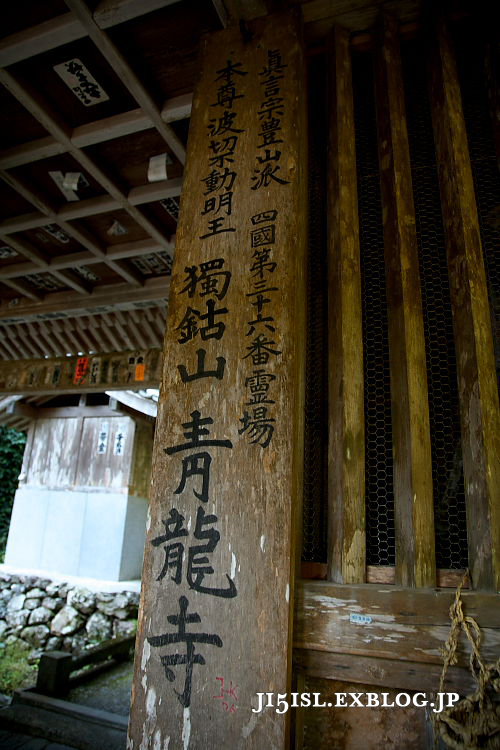 眞言宗豊山派 四國第三十六番霊場
本尊波切不動明王
獨鈷山 青龍寺
JI5ISL.EXBLOG.JP